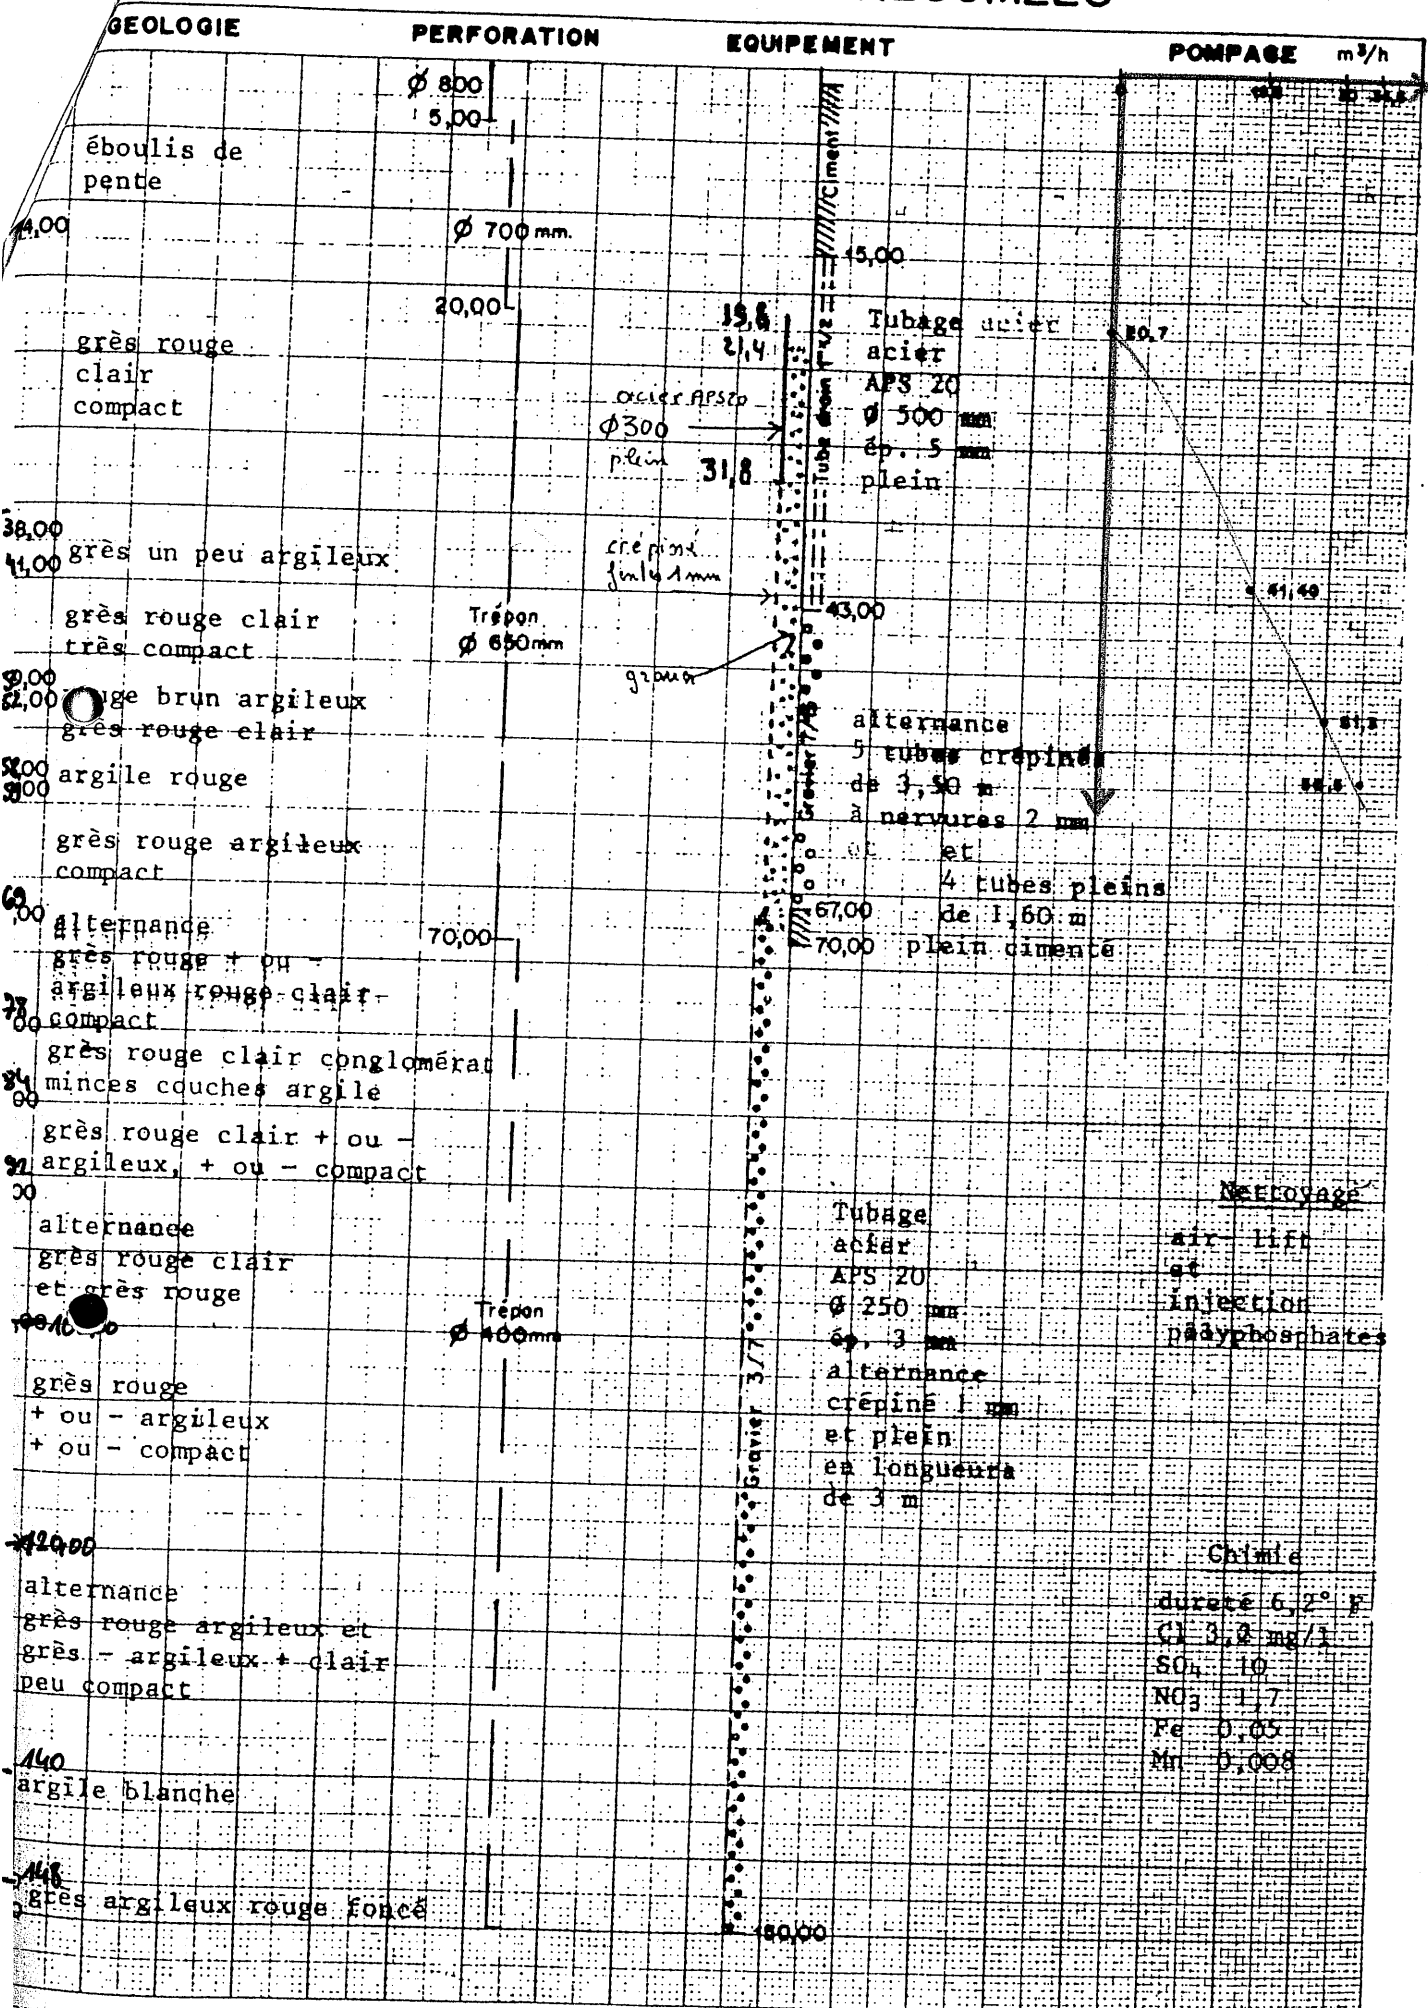 GEOLOGIE
PERFORATION
EQUIPEMENT
POMPAGE m³/h
Ø 800
5,00
éboulis de
pente
14,00
Ø 700 mm.
20,00
grès rouge
clair
compact
38,00
41,00
grès un peu argileux
grès rouge clair
très compact
Trépan
Ø 650mm
52,00
brun argileux
grès rouge clair
argile rouge
grès rouge argileux
compact
alternance
grès rouge + ou -
argileux rouge clair
compact
70,00
78
00
grès rouge clair conglomérat
minces couches argile
84
00
grès rouge clair + ou -
argileux, + ou - compact
92
00
alternance
grès rouge clair
et grès rouge
Trépan
Ø 400mm
grès rouge
+ ou - argileux
+ ou - compact
120,00
alternance
grès rouge argileux et
grès - argileux + clair
peu compact
140
argile blanche
148
grès argileux rouge foncé
Ciment
15,00
19,6
21,4
acier APS20
Ø300
plein
31,8
Tubage acier
acier
APS 20
Ø 500 mm
ép. 5 mm
plein
crépiné
fentes 1mm
43,00
gravier
alternance
5 tubes crépinés
de 3,50 m
à nervures 2 mm
et et
4 tubes pleins
de 1,60 m
67,00
70,00 plein cimenté
Gravier 3/7
Tubage
acier
APS 20
Ø 250 mm
ép. 3 mm
alternance
crépiné 1 mm
et plein
en longueurs
de 3 m
150,00
0
20,7
41,40
51,5
Nettoyage
air- lift
et
injection
polyphosphates
Chimie
dureté 6,2° F
Cl mg/l
SO₄ 10
NO₃ 1,7
Fe 0,05
Mn 0,008